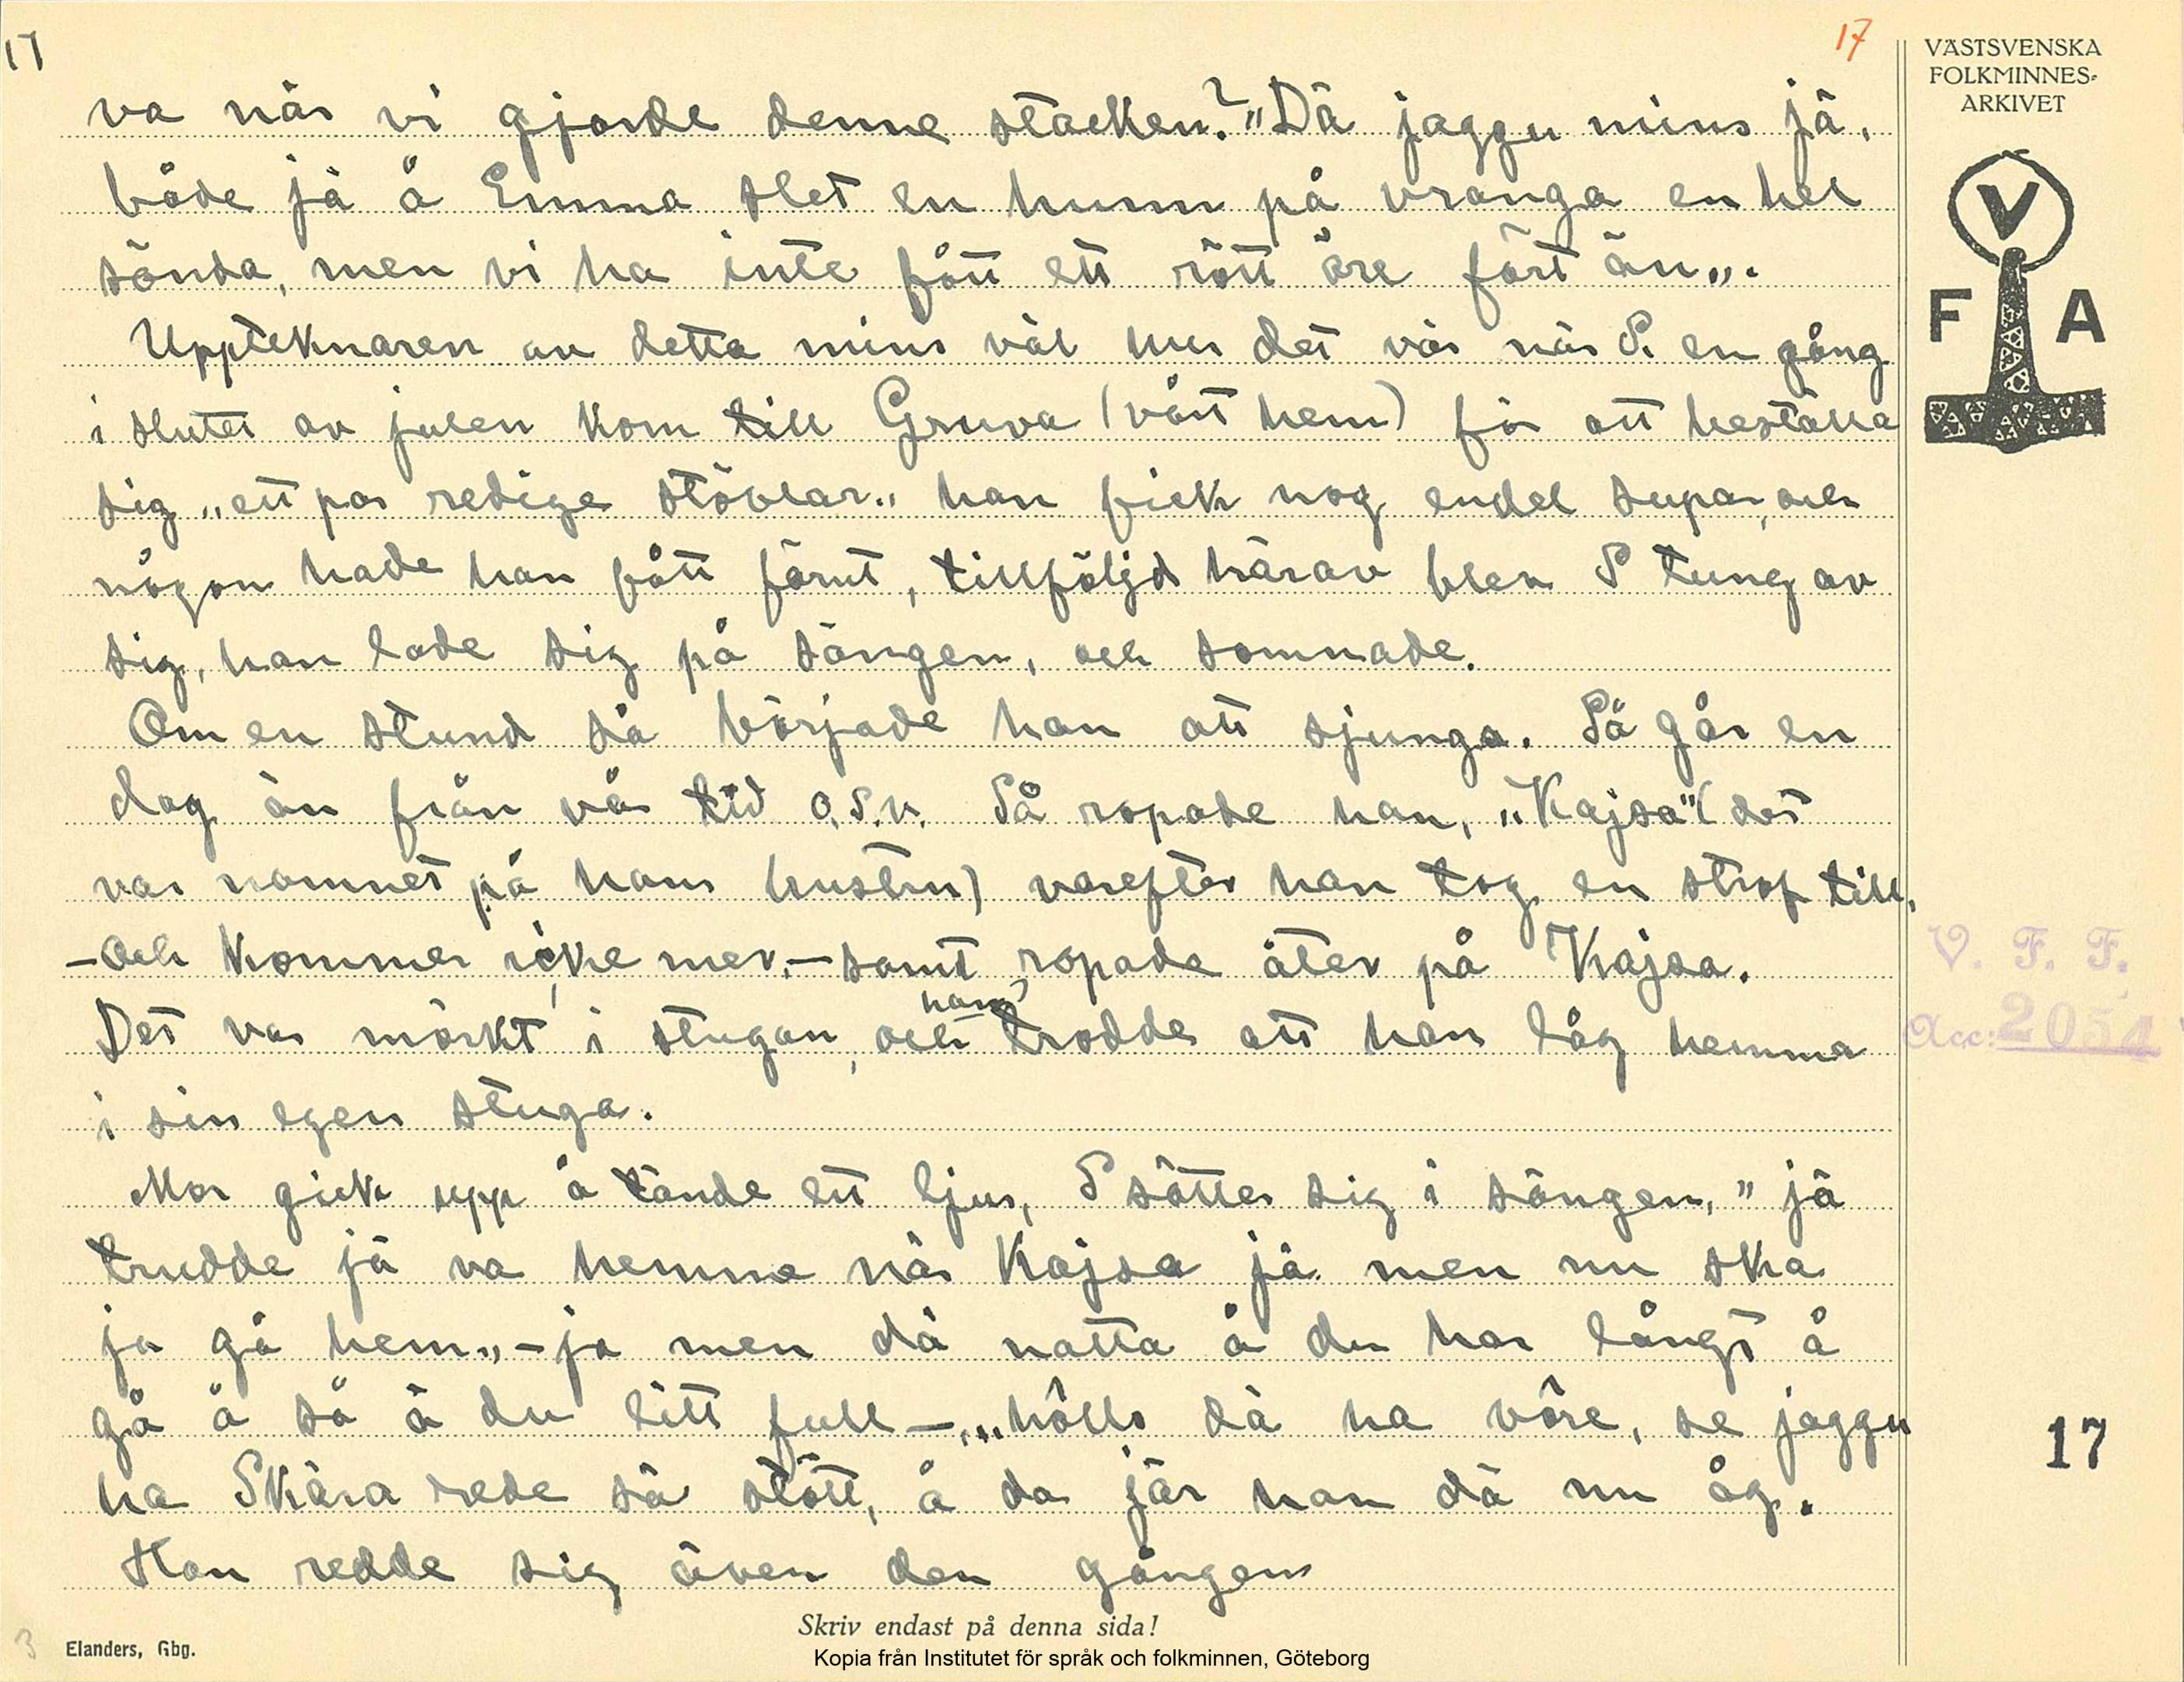 17
17
VÄSTSVENSKA
FOLKMINNES-
ARKIVET
V
F A
va när vi gjorde denne stacken? "Dä jaggu mins jä,
både jä å Emma slet en hunn på vranga en hel
sönda, men vi ha inte fått ett rött öre fört än".
Uppteknaren av detta mins väl hur det var när S. en gång
i slutet av julen kom till Gruva (vårt hem) för att beställa
sig "ett par redige stövlar" han fick nog endel supar, och
någon hade han fått förut, tillföljd härav blev S tung av
sig, han lade sig på sängen, och somnade.
Om en stund så började han att sjunga. Så går en
dag än från vår tid o.s.v. Så ropade han, "Kajsa" (det
var namnet på hans hustru) varefter han tog en strof till,
- Och kommer icke mer, - samt ropade åter på Kajsa.
Det var mörkt i stugan, och han trodde att han låg hemma
i sin egen stuga.
Mor gick upp å tände ett ljus, S sätter sig i sängen, "jä
trudde jä va hemma när Kajsa jä men nu ska
ja gå hem" - ja men dä natta å du har långt å
gå å så ä du litt full - "hôlls dä ha vôre, se jaggu
ha Skåra rede så stött, å da jär han dä nu åg.
Han redde sig även den gången
V. F. F.
Acc: 2054
17
Skriv endast på denna sida!
3
Elanders, Gbg.
Kopia från Institutet för språk och folkminnen, Göteborg